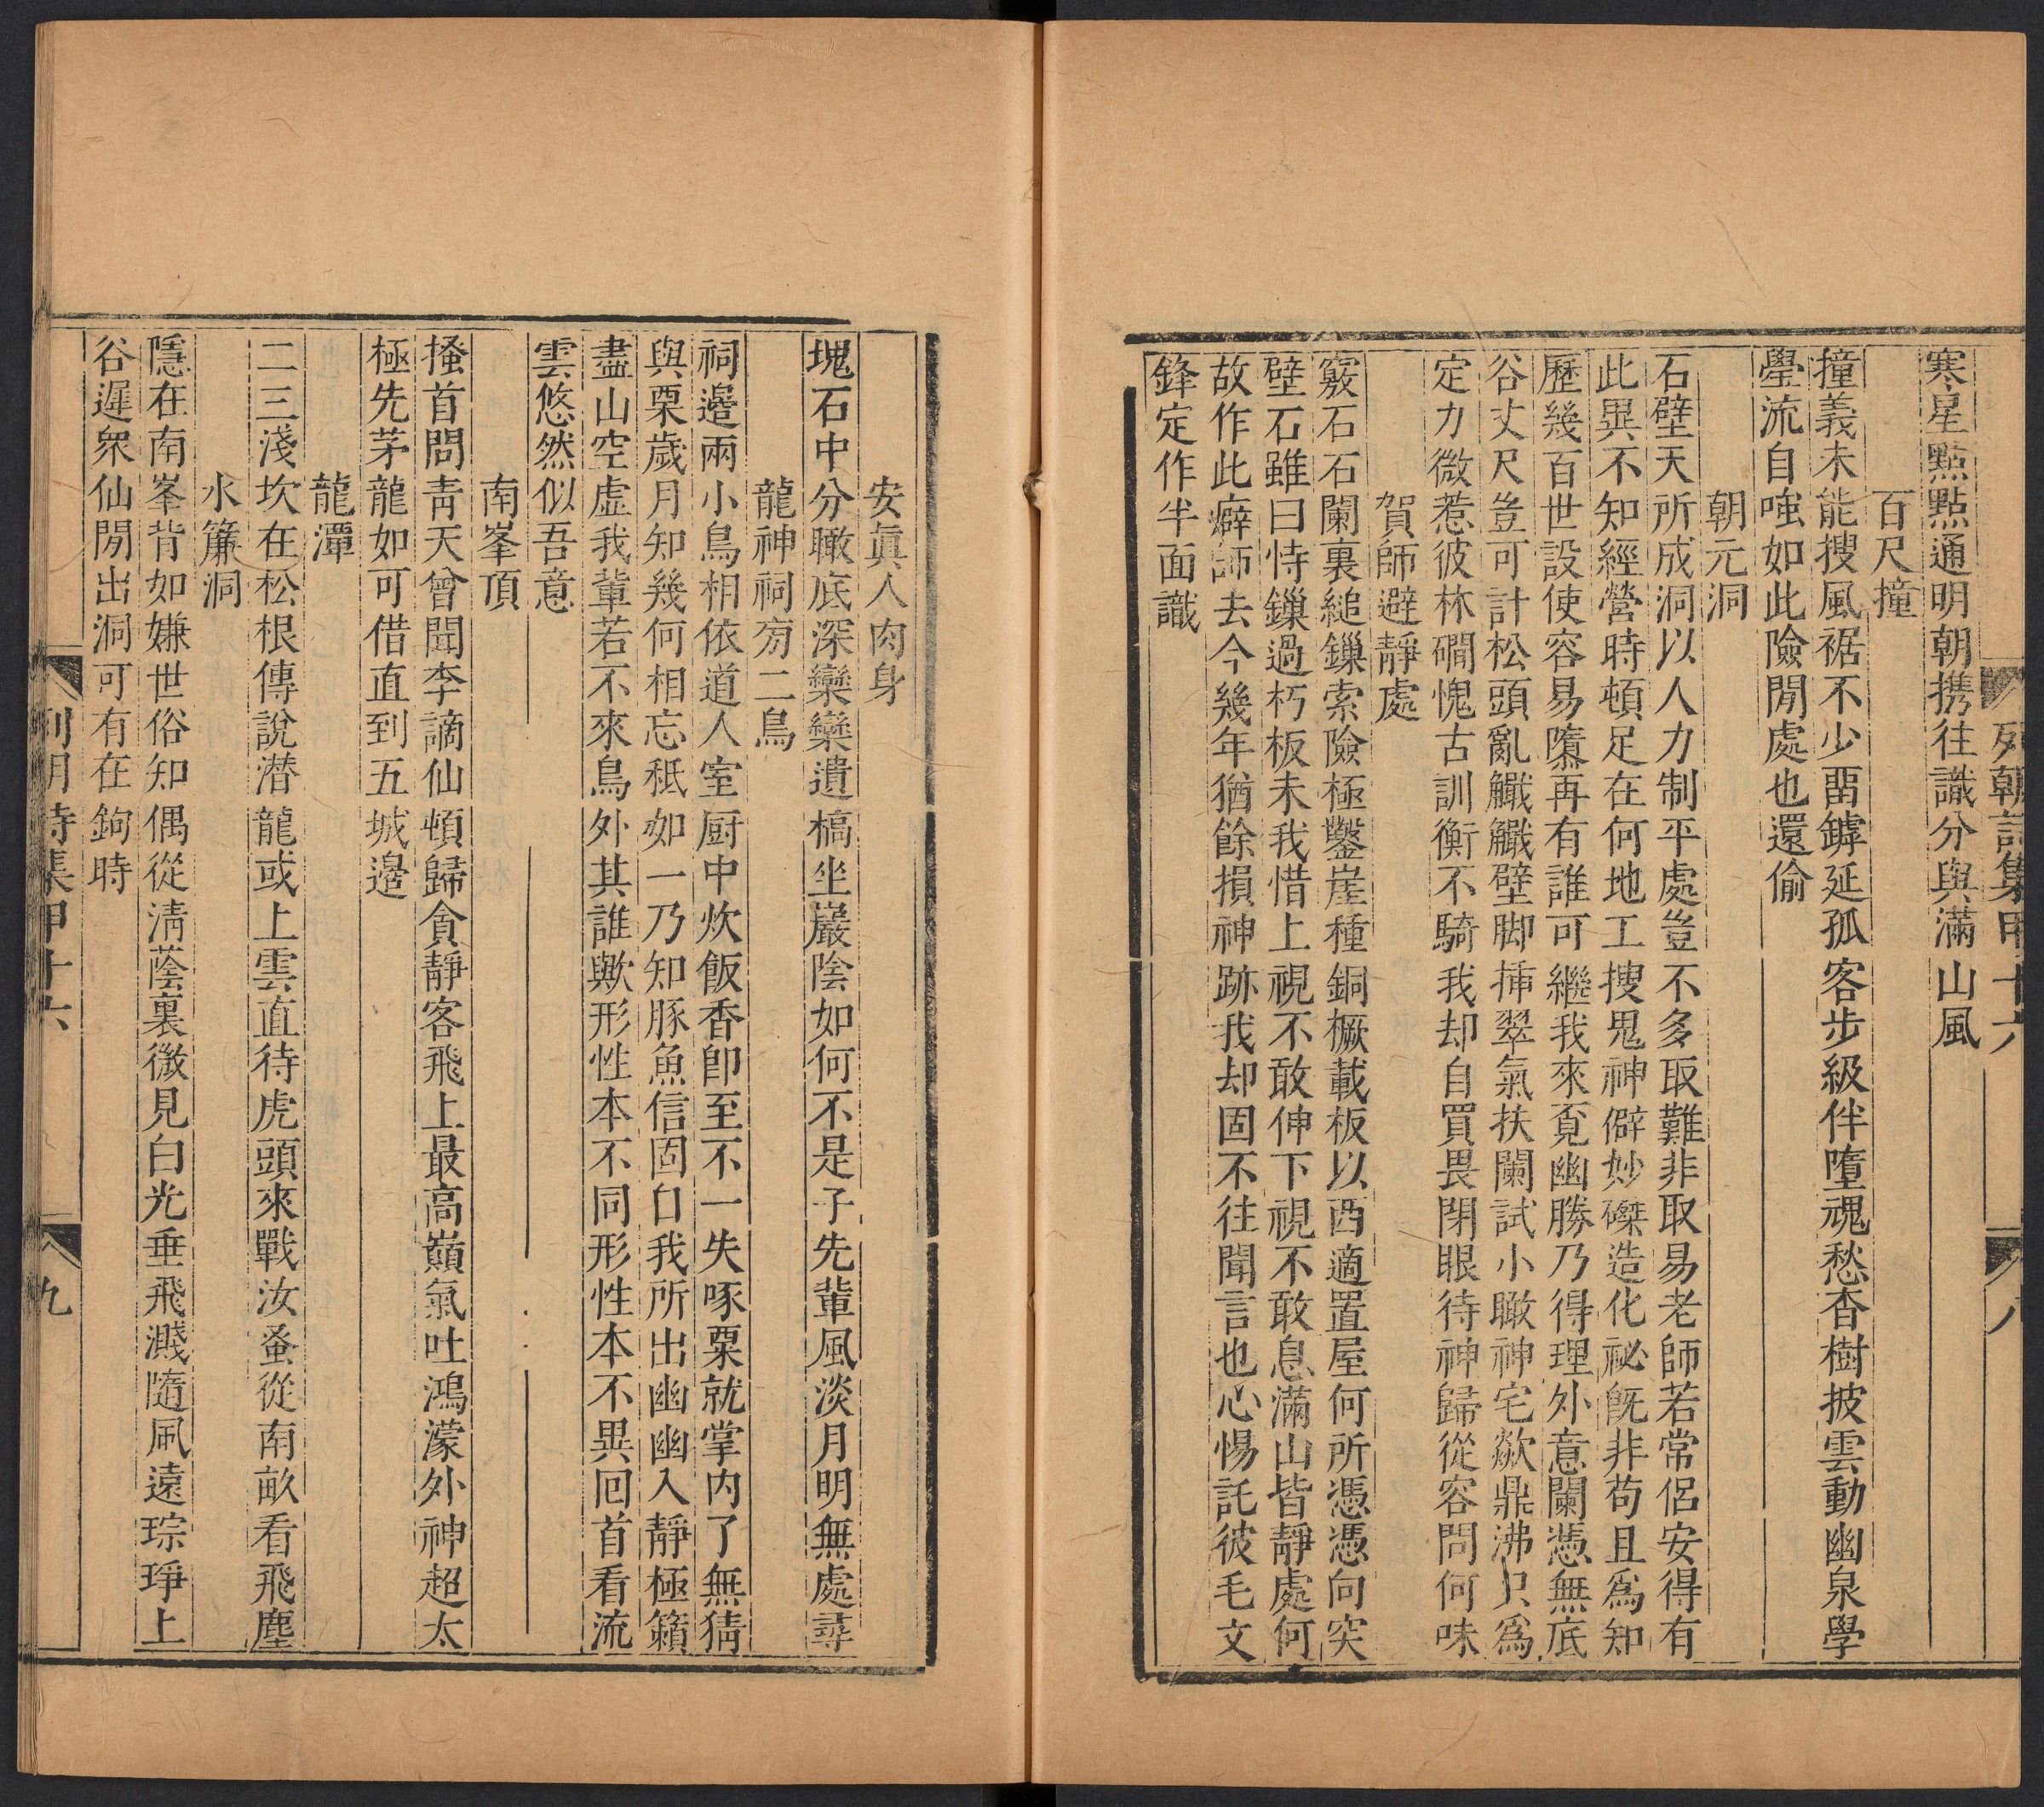 寒星點點通明朝携往識分與滿山風
百尺撞
撞義未能搜風裾不少畱罅延孤客步級伴墮魂愁杳樹披雲動幽泉學
壆流自嗤如此險閒處也還偷
朝元洞
石壁天所成洞以人力制平處豈不多取難非取易老師若常侶安得有
此異不知經營時頓足在何地工搜鬼神僻妙磔造化祕旣非苟且爲知
歷幾百世設使容易隳再有誰可繼我來覔幽勝乃得理外意闌憑無底
谷丈尺豈可計松頭亂觿觿壁脚揷翠氣扶闌試小瞰神宅欻鼎沸只爲
定力微惹彼林磵愧古訓衡不騎我却自買畏閉眼待神歸從容問何味
賀師避靜處
竅石石闌裏縋鏁索險極鑿崖種銅橛載板以西適置屋何所憑憑向突
壁石雖曰恃鏁過朽板未我惜上視不敢伸下視不敢息滿山皆靜處何
故作此癖師去今幾年猶餘損神跡我却固不往聞言也心惕託彼毛文
鋒定作半面識
列朝詩集甲十六
八
安眞人肉身
塊石中分瞰底深欒欒遺槁坐巖陰如何不是子先輩風淡月明無處尋
龍神祠旁二鳥
祠邊兩小鳥相依道人室厨中炊飯香卽至不一失啄粟就掌內了無猜
與栗歲月知幾何相忘秪如一乃知豚魚信固自我所出幽幽入靜極籟
盡山空虛我輩若不來鳥外其誰歟形性本不同形性本不異回首看流
雲悠然似吾意
南峯頂
搔首問靑天曾聞李謫仙頓歸貪靜客飛上最高巔氣吐鴻濛外神超太
極先茅龍如可借直到五城邊
龍潭
二三淺坎在松根傳說潛龍或上雲直待虎頭來戰汝蚤從南畝看飛塵
水簾洞
隱在南峯背如嫌世俗知偶從淸蔭裏微見白光垂飛濺隨風遠琮琤上
谷遲衆仙閒出洞可有在鉤時
列朝詩集甲十六
九